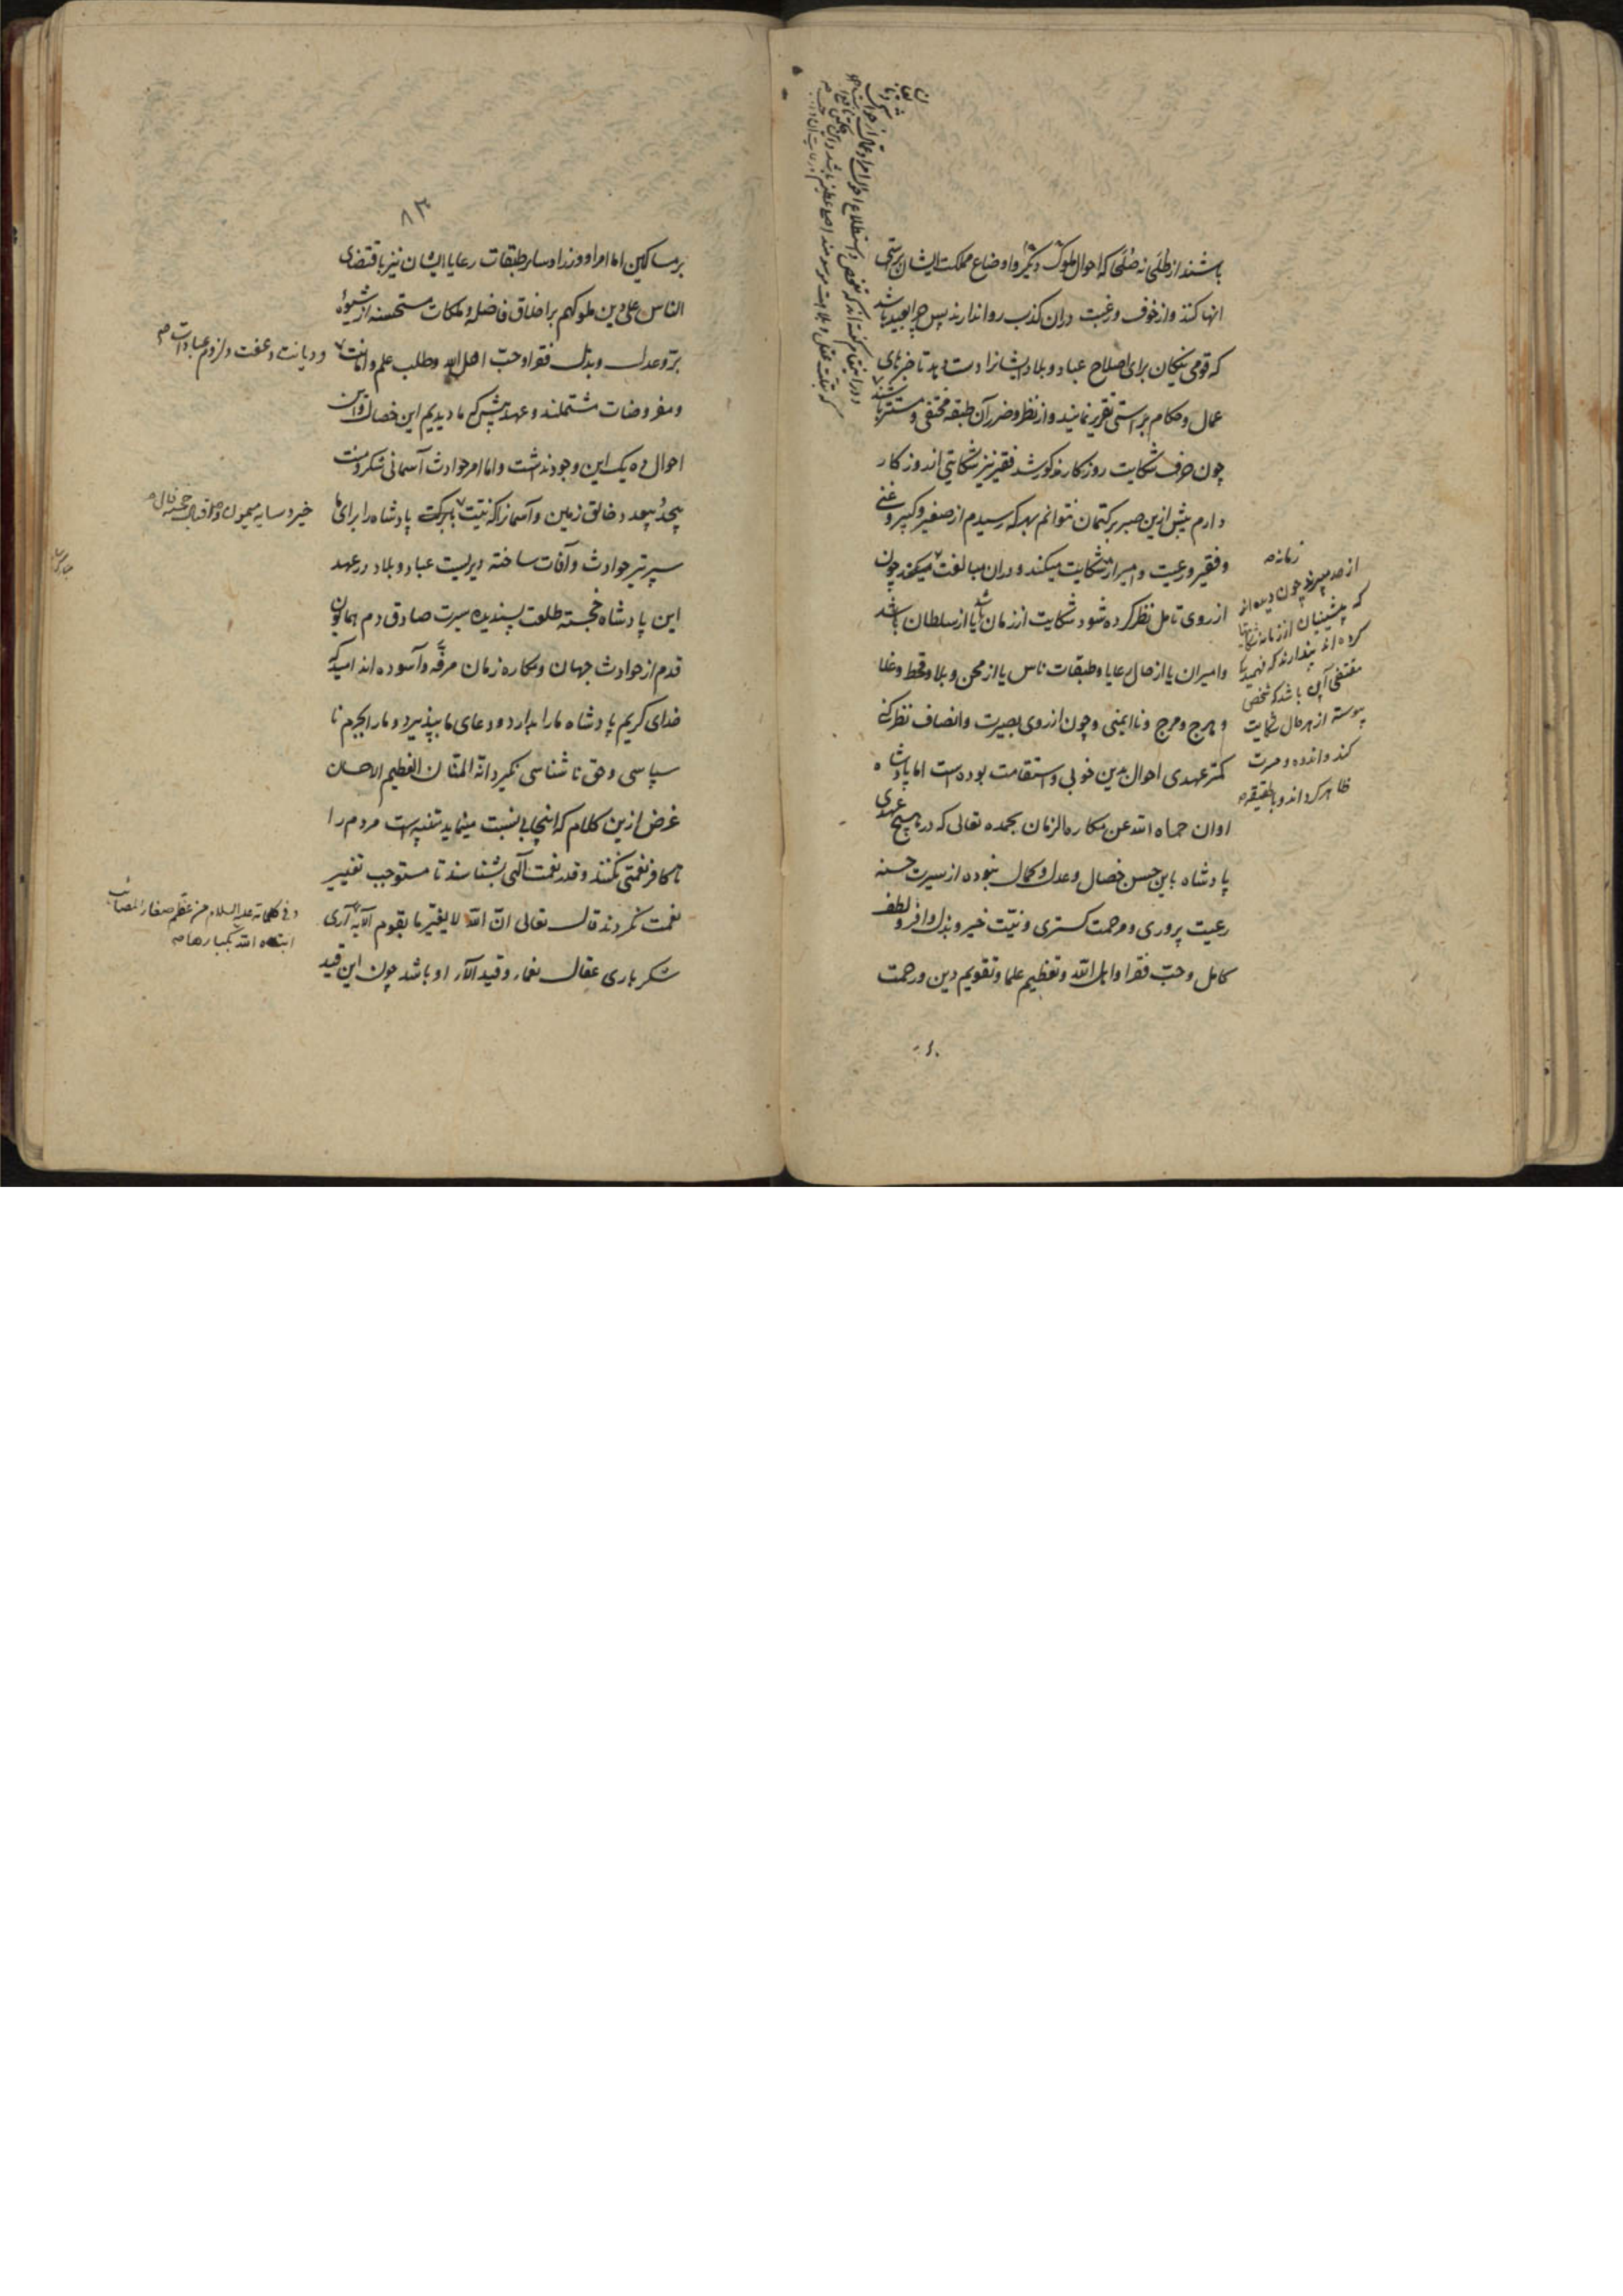 باشند از طلحا نه صلحا که احوال ملوک دیگر و اوضاع مملکت ایشان براستی
انها کنند و از خوف و رغبت دران کذب روا ندارند پس چرا بعید باشد
که قومی نیکان برای اصلاح عباد و بلاد ایشانرا دست دهد تا خبرهای
عمال و حکام براستی تقریر نمایند و از نظر و ضرر آن طبقه مختفی و مستتر باشند
چون حرف شکایت روزکار مذکور شد فقیر نیز شکایتی از روزکار
دارم بیش ازین صبر بر کتمان نتوانم بهر که رسیدم از صغیر و کبیر و غنی
و فقیر و رعیت و امیر از شکایت میکند و دران مبالغت میکند چون
از روی تامل نظر کرده شود شکایت از زمان باشد یا از سلطان باشد
و امیران یا از حال رعایا و طبقات ناس یا از محن و بلا و قحط و غلا
و هرج و مرج و ناایمنی و چون از روی بصیرت و انصاف نظر کنی
کمتر عهدی احوال بدین خوبی و استقامت بوده است اما پادشاه
اوان حماه الله عن مکاره الزمان بحمده تعالی که در هیچ عهدی
پادشاه باین حسن خصال و عدل و کمال نبوده از سیرت حسنه
رعیت پروری و مرحمت کستری و نیت خیر و بذل وافر و لطف
کامل و حب فقرا و اهل الله و تعظیم علما و تقویم دین و رحمت
زمانه
از هر میپرند چون دیده اند
که پیشینیان از زمان شکایتها
کرده اند پندارند که فهمید
مقتضی آن باشد که شخص
پیوسته از هر حال شکایت
کند و اندوه و حسرت
ظاهر کرداند و بالحقیقه
۸۳
بر مساکین اما امرا و وزرا و سایر طبقات رعایا ایشان نیز باقتضای
الناس علی دین ملوکهم بر اخلاق فاضله و ملکات مستحسنه از شیوه
بر و عدل و بذل فقرا و حب اهل الله و طلب علم و امانت
و دیانت و عفت و لزوم عبادات
و مفروضات مشتملند و عهد پیش که ما دیدیم این خصال و این
احوال ده یک این وجود نداشت و اما امر حوادث آسمانی شکر و منت
بیحد و بیعد خالق زمین و آسمانرا که نیت بابرکت پادشاه را برای ما
خیر و سایه میمون و اقبال خجسته فال
سپر تیر حوادث و آفات ساخته دیریست عباد و بلاد در عهد
این پادشاه خجسته طلعت پسندیده سیرت صادق دم همایون
قدم از حوادث جهان و مکاره زمان مرفه و آسوده اند امید که
خدای کریم پادشاه ما را بدارد و دعای ما بپذیرد و ما را بجرم نا
سپاسی و حق ناشناسی نکیرد انه المنان العظیم الاحسان
غرض ازین کلام که اینجا بی نسبت مینماید تنبیه است مردم را
تا کافر نعمتی نکنند و قدر نعمت الهی بشناسند تا مستوجب تغییر
نعمت نکردند قال تعالی ان الله لا یغیر ما بقوم الآیة آری
و فی کلماته علیه السلام من عظم صغار المصائب
ابتلاه الله بکبارها
شکر باری عقال نعماء و قید آلاء او باشد چون این قید